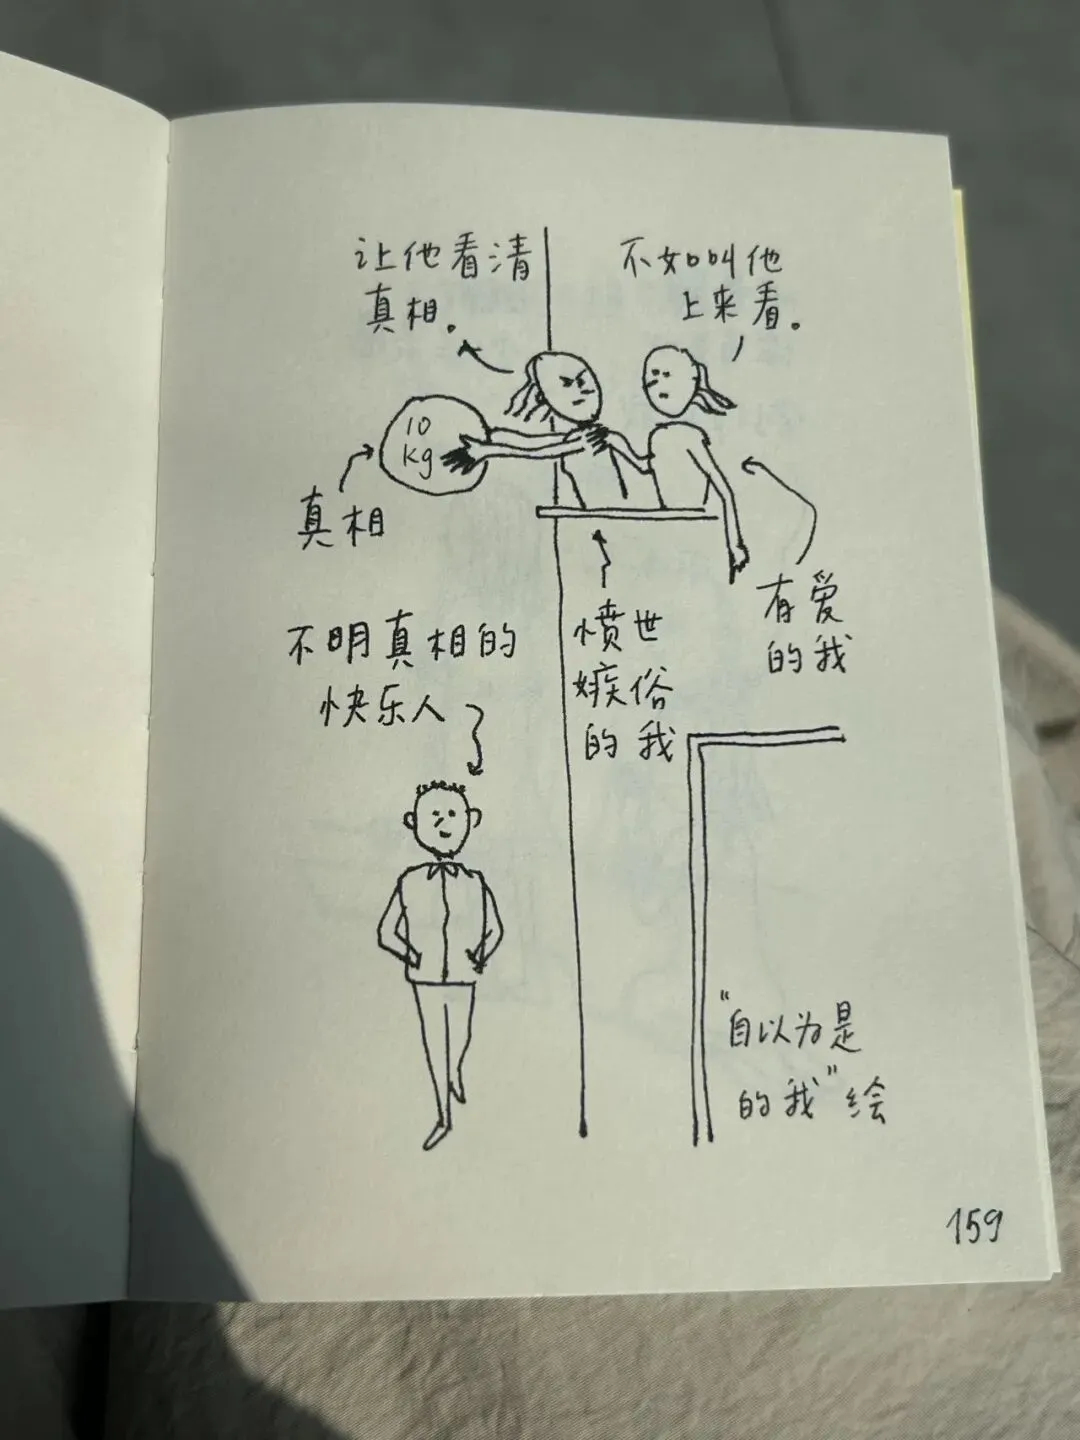 让他看清
真相。
不如叫他
上来看。
10
kg
真相
有爱
的我
愤世
嫉俗
的我
不明真相的
快乐人
"自以为是
的我"绘
159